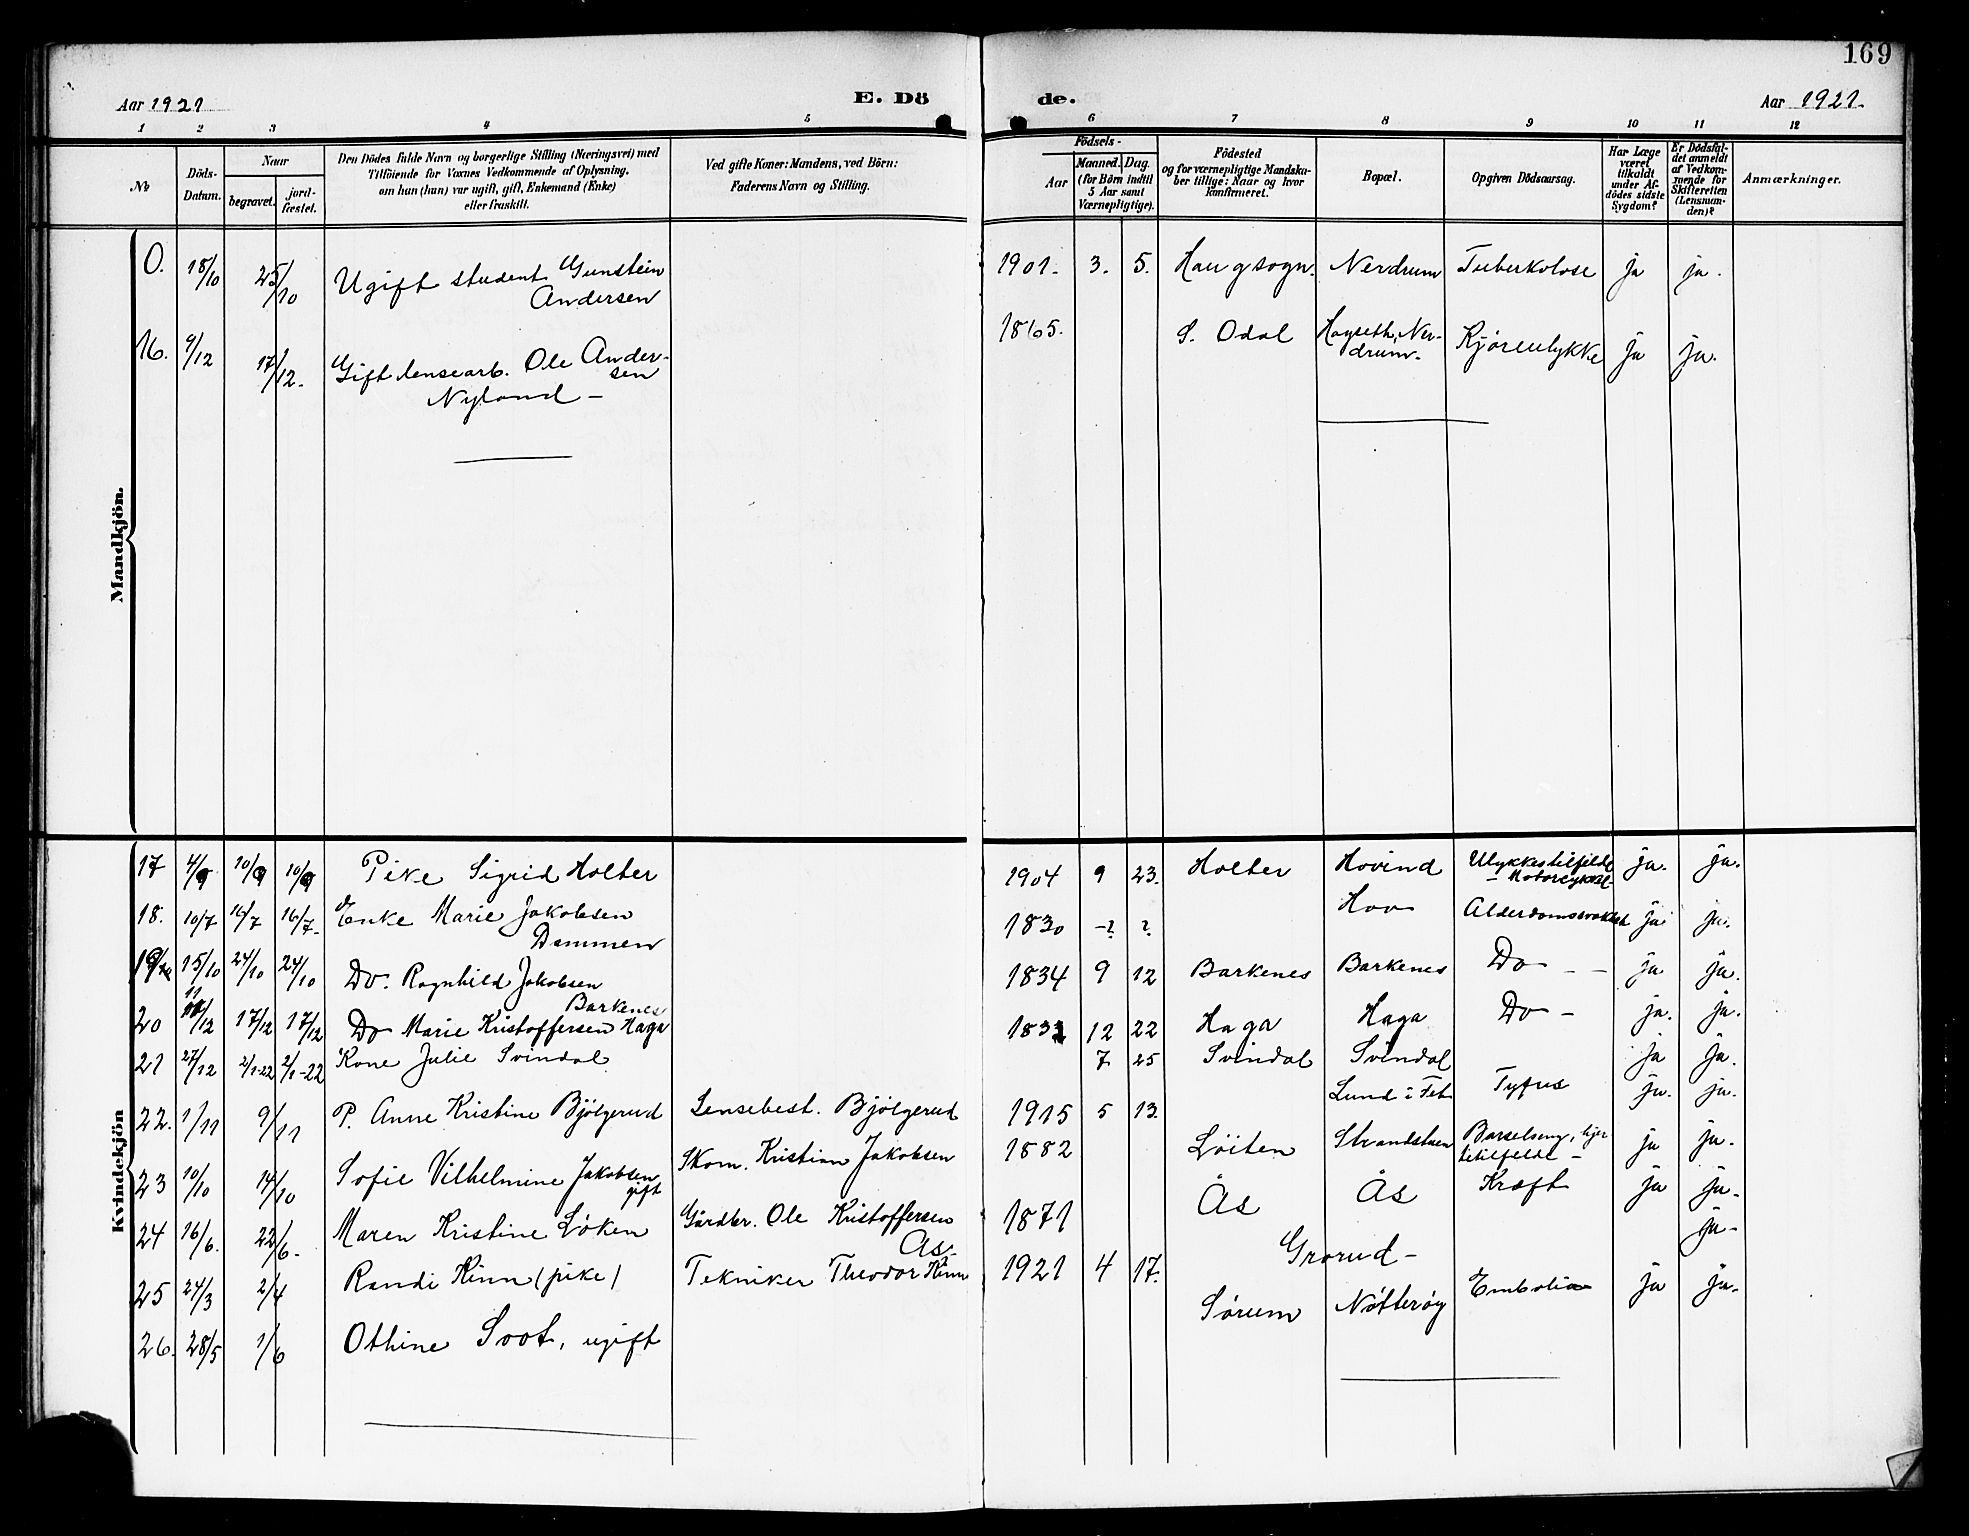 169
Aar 1921
E. Dö
de.
Aar 1921.
1 2 3 4 5 6 7 8 9 10 11 12
No
Döds-
Datum.
Naar
begravet.
jord-
fæstet.
Den Dödes fulde Navn og borgerlige Stilling (Næringsvei) med
Tilföiende for Voxnes Vedkommende af Oplysning,
om han (hun) var ugift, gift, Enkemand (Enke)
eller fraskilt.
Ved gifte Koner: Mandens, ved Börn:
Faderens Navn og Stilling.
Födsels-
Aar
Maaned. Dag.
(for Börn indtil
5 Aar samt
Værnepligtige).
Födested
og for værnepligtige Mandska-
ber tillige: Naar og hvor
konfirmeret.
Bopæl.
Opgiven Dödsaarsag.
Har Læge
været
tilkaldt
under Af-
dödes sidste
Sygdom?
Er Dödsfal-
det anmeldt
af Vedkom-
mende for
Skifteretten
(Lensman-
den)?
Anmærkninger.
Mandkjön.
0. 18/10 25/10 Ugift student Gunstein
Andersen
1901. 3. 5. Haugsogn. Nerdrum Tuberkolose ja ja.
16. 9/12 17/12. Gift lensearb. Ole Ander-
sen
Nyland -
1865. S. Odal Hogseth, Ner-
drum. Kjöreulykke ja ja.
Kvindekjön
17 4/9 10/9 10/9 Pike Sigrid Holter
1904 9 23. Holter Hovind Ulykkestilfelde
- Motorcykkel- ja. ja.
18. 10/7 16/7 16/7. Enke Marie Jakobsen
Dammen
1830 -? ? Hov ja ja.
19 15/10 24/10 24/10 Do. Ragnhild Jakobsen
Barkenes
1834 9 12 Barkenes Barkenes Do - - ja ja.
20 11/12 17/12 17/12 Do Marie Kristoffersen Haga
12 22 Haga Haga Do - ja. ja.
21 27/12 2/1-22 2/1-22 Kone Julie Svindal
7 25 Svindal Svindal ja ja.
22. 1/11 9/11 P. Anne Kristine Bjölgerud Lensebest. Bjölgerud
1915 5 13. Lund i Fet Tyfus ja. ja.
23 10/10 14/10 Sofie Vilhelmine Jakobsen
gift
Skom. Kristian Jakobsen
1882 Löiten Barselseng, hjer
tetilfelde - ja ja.
24 16/6. 22/6. Maren Kristine Löken Gårdbr. Ole Kristoffersen
Ås.
1871 Ås Ås Kræft ja ja.
25 24/3 2/4 Randi Kinn (pike) Tekniker Theodor Kinn
1921 4 17. Grorud - ja-
26. 28/5 1/6 Othine Soot, ugift
Sörum Nötteröy Embolia ja ja.